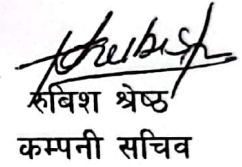 रुबिश श्रेष्ठ
कम्पनी सचिव